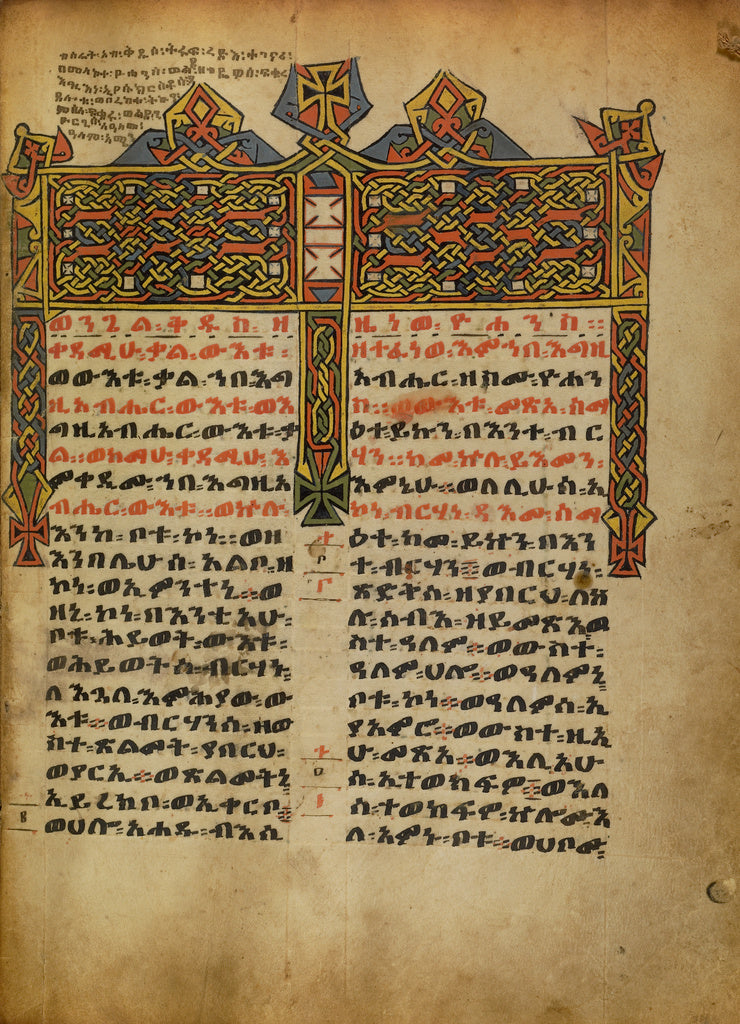 ወንጌል፡ቅዱስ፡ዘ
ቀዳሚሁ፡ቃል፡ውእቱ፡
ወውእቱ፡ቃል፡ኀበ፡እግ
ዚአብሔር፡ውእቱ፡ወእ
ግዚአብሔር፡ውእቱ፡ቃ
ል፡፡ወከማሁ፡ቀዳሚሁ፡እ
ምቀዲሙ፡ኀበ፡እግዚአ
ብሔር፡ውእቱ፡፡ወኵሉ፡
እንከ፡ቦቱ፡ኮነ፡፡ወዘ
እንበሌሁሰ፡አልቦ፡ዘ
ኮነ፡ወኢምንተኒ፡፡ወ
ዘኒ፡ኮነ፡በእንቲአሁ፡
ቦቱ፡ሕይወት፡ውእቱ፡
ወሕይወትሰ፡ብርሃነ፡
ለእጓለ፡እምሕያው፡ው
እቱ፡፡ወብርሃንሰ፡ዘው
ስተ፡ጽልመት፡ያበርህ፡
ወያርኢ፡፡ወጽልመትኒ
ኢይረክቦ፡ወኢቀርቦ፡
ወሀሎ፡አሐዱ፡ብእሲ
ዜነወ፡ዮሐንስ፡፡
ዘተፈነወ፡እምኀበ፡እግዚ
አብሔር፡ዘስሙ፡ዮሐን
ስ፡፡ወውእቱ፡መጽአ፡ስም
ዕተ፡ይኩን፡በእንተ፡ብር
ሃን፡፡ከመ፡ኵሉ፡ይእመን፡
እምኔሁ፡፡ወለሊሁሰ፡ኢ
ኮነ፡ብርሃነ፡ዳእሙ፡ስም
ዕተ፡ከመ፡ይኩን፡በእን
ተ፡ብርሃን፡፡ወብርሃነ፡
ጽድቅሰ፡ዘያበርህ፡ለኵ
ሉ፡ሰብእ፡ዘይመጽእ፡ው
ስተ፡ዓለም፡፡ወውስተ፡
ዓለም፡ሀሎ፡፡ወዓለምኒ
ቦቱ፡ኮነ፡፡ወዓለምሰ፡ኢ
ያእመሮ፡፡ወውስተ፡ዚአ
ሁ፡መጽአ፡፡ወእሊአሁ
ሰ፡ኢተወክፍዎ፡፡ወእለ
ሰ፡ተወክፍዎ፡ኵሎሙ፡እ
ለ፡አምኑ፡ቦቱ፡፡ወሀቦሙ፡